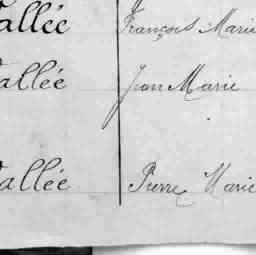 allée François Marie
allée Jean Marie
allée Pierre Marie